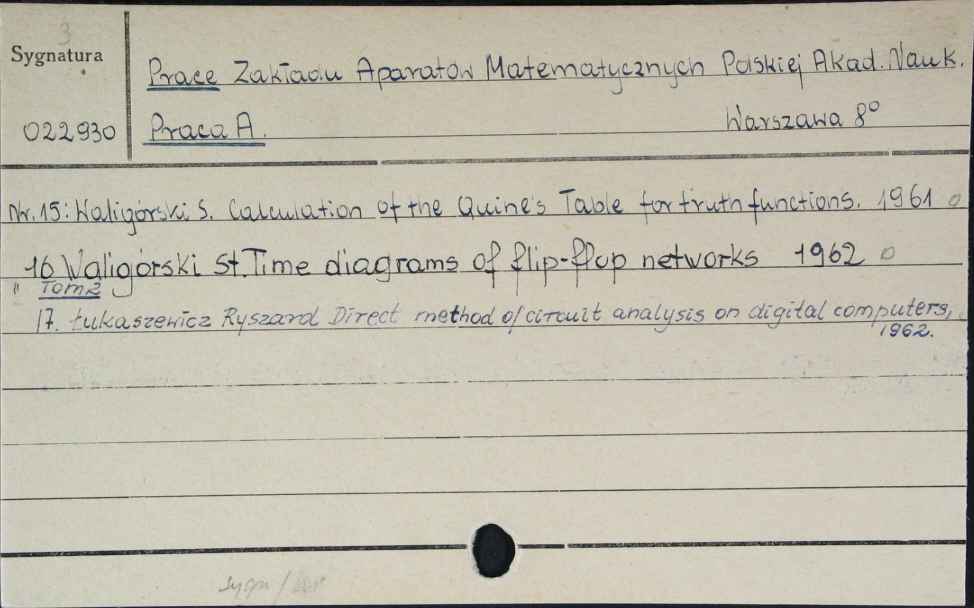 3
Sygnatura
Prace Zakładu Aparatów Matematycznych Polskiej Akad. Nauk.
022930 Praca A. Warszawa 8°
Nr. 15: Waligórski S. Calculation of the Quine's Table for truth functions. 1961 0
16 Waligórski St. Time diagrams of flip-flop networks 1962 0
" Tom 2
17. Łukaszewicz Ryszard Direct method of circuit analysis on digital computers,
1962.
sygn /